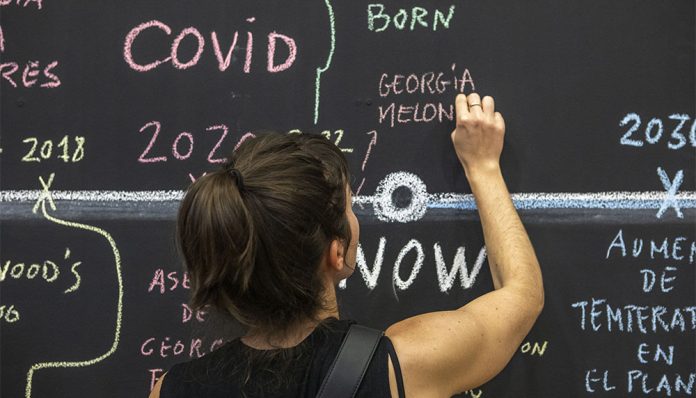 COVID
BORN
GEORGÍA
MELON
2018
2020
2030
NOW
WOOD'S
DE
GEOR
ON
AUMEN
DE
TEMTERAT
EN
EL PLAN